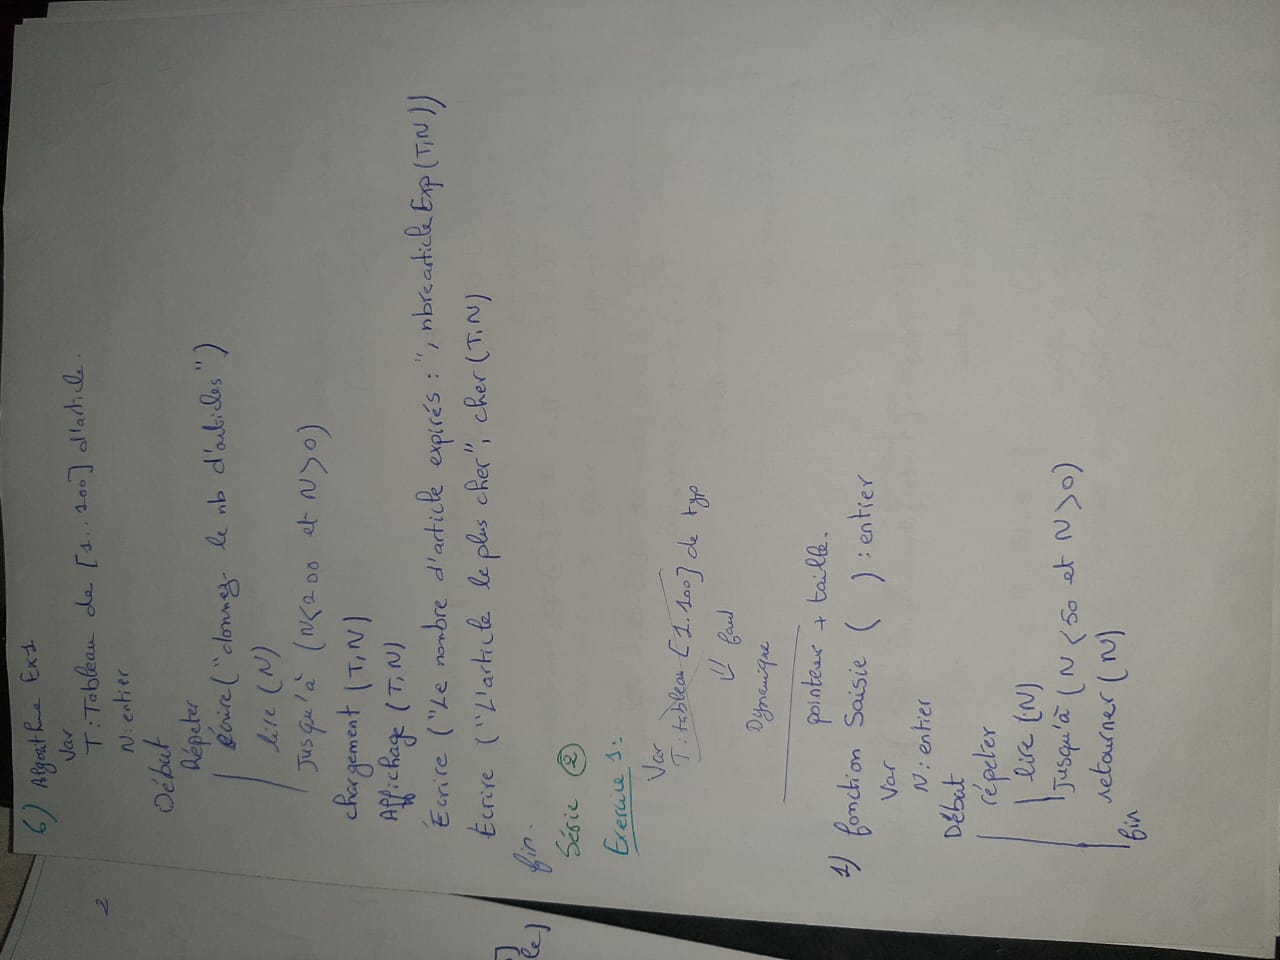 6) Algorithme Ex1
Var
T : Tableau de [1..200] d'article.
N : entier
Début
Répéter
Écrire ("donnez le nb d'articles")
lire (N)
Jusqu'à (N<200 et N>0)
chargement (T,N)
Affichage (T,N)
Écrire ("Le nombre d'article expirés : ", nbrearticleExp(T,N))
Écrire ("L'article le plus cher", cher(T,N)
fin.
Série 2
Exercice 1:
Var
T : tableau [1.100] de typ
Dynamique
pointeur + taille.
1) fonction Saisie ( ) : entier
Var
N : entier
Début
répéter
lire (N)
Jusqu'à (N<50 et N>0)
retourner (N)
fin
2
le)